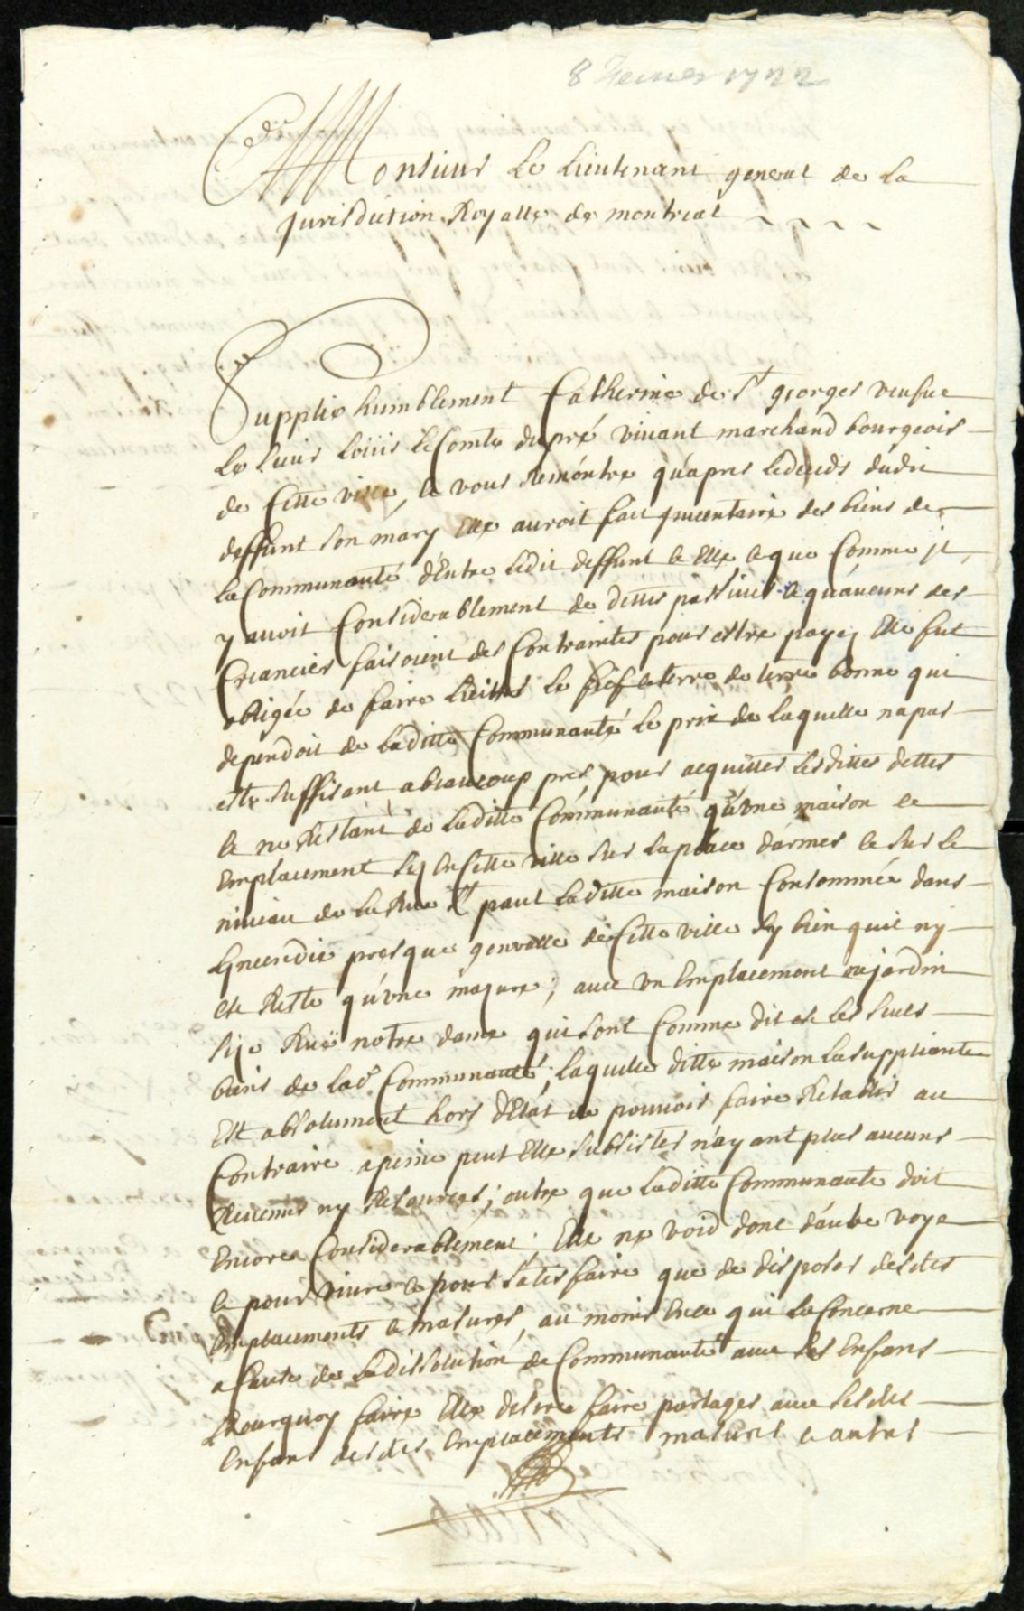 8 fevrier 1722
A Monsieur Le Lieutenant general de La
Jurisdiction Royalle de montreal
Supplie humblement Catherine de St georges veufue
Le sieur Loüis LeComte dupré vivant marchand bourgeois
de Cette ville, & vous Remontre qu'apres Ledeceds dudit
deffunt son mary Elle auroit fait Inventaire des biens de
la Communauté d'Entre Ledit deffunt & Elle & que Comme jl
y avoit Considerablement de dettes passives & qu'aucuns des
Creanciers faisoient des Contraintes pour estre payez Elle fut
obligée de faire Liciter le fief & terre de terre bonne qui
dependoit de Laditte Communauté Le prix de laquelle na pas
esté suffisant abeaucoup pres pour acquitter Lesdittes dettes
& ne Restant de Laditte Communauté qu'une maison et
Emplacement sis en Cette ville sur La place d'armes & sur le
niveau de La Rue St paul Laditte maison Consommée dans
Lincendie presque generalle de Cette ville sy bien quil ny
est Resté qu'une mazure; avec un Emplacement ou jardin
size Rüe notre dame qui sont Comme dit est les seuls
biens de lad. Communauté, laquelle ditte maison La suppliante
Est absolument hors d'Etat de pouvoir faire Retablir au
Contraire apeine peut Elle subsister n'ayant plus aucuns
Revenus ny Resources; outre que Laditte Communauté doit
Encore Considerablement. Elle ne void dont d'autre voye
& pour vivre & pour satisfaire que de disposer desdits
Emplacements & masures, au moins En ce qui La Concerne
a Cause de La dissolution de Communauté avec ses Enfans
Pourquoy faire Elle desire faire partager avec sesdits
Enfans desdits Emplacements masures & autres